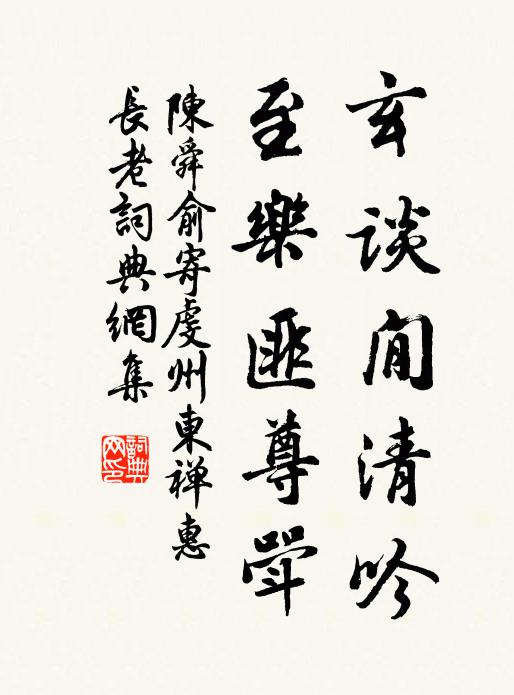 玄談間清吟
至樂匪尊斝
陳舜俞寄虔州東禅惠
長老詞典網集
詞典网印